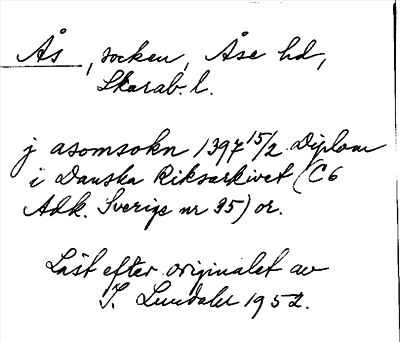 Ås, socken, Åse hd,
Skarab. l.
j asomsokn 1397 15/2 Diplom
i Danska Riksarkivet (C6
Adk. Sverige nr 35) or.
Läst efter originalet av
J. Lundahl 1952.